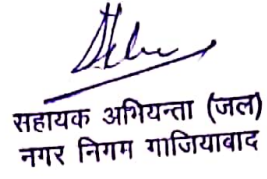 सहायक अभियन्ता (जल)
नगर निगम गाजियाबाद